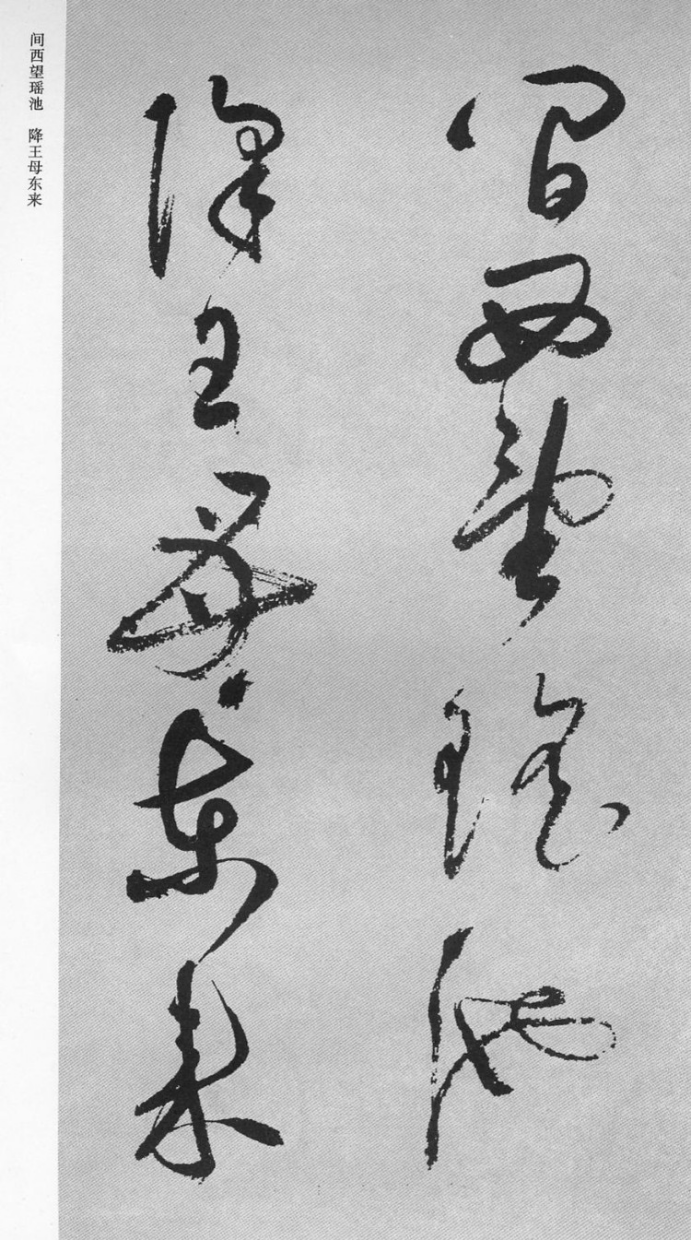 間西望瑤池
降王母東來
间西望瑶池 降王母东来